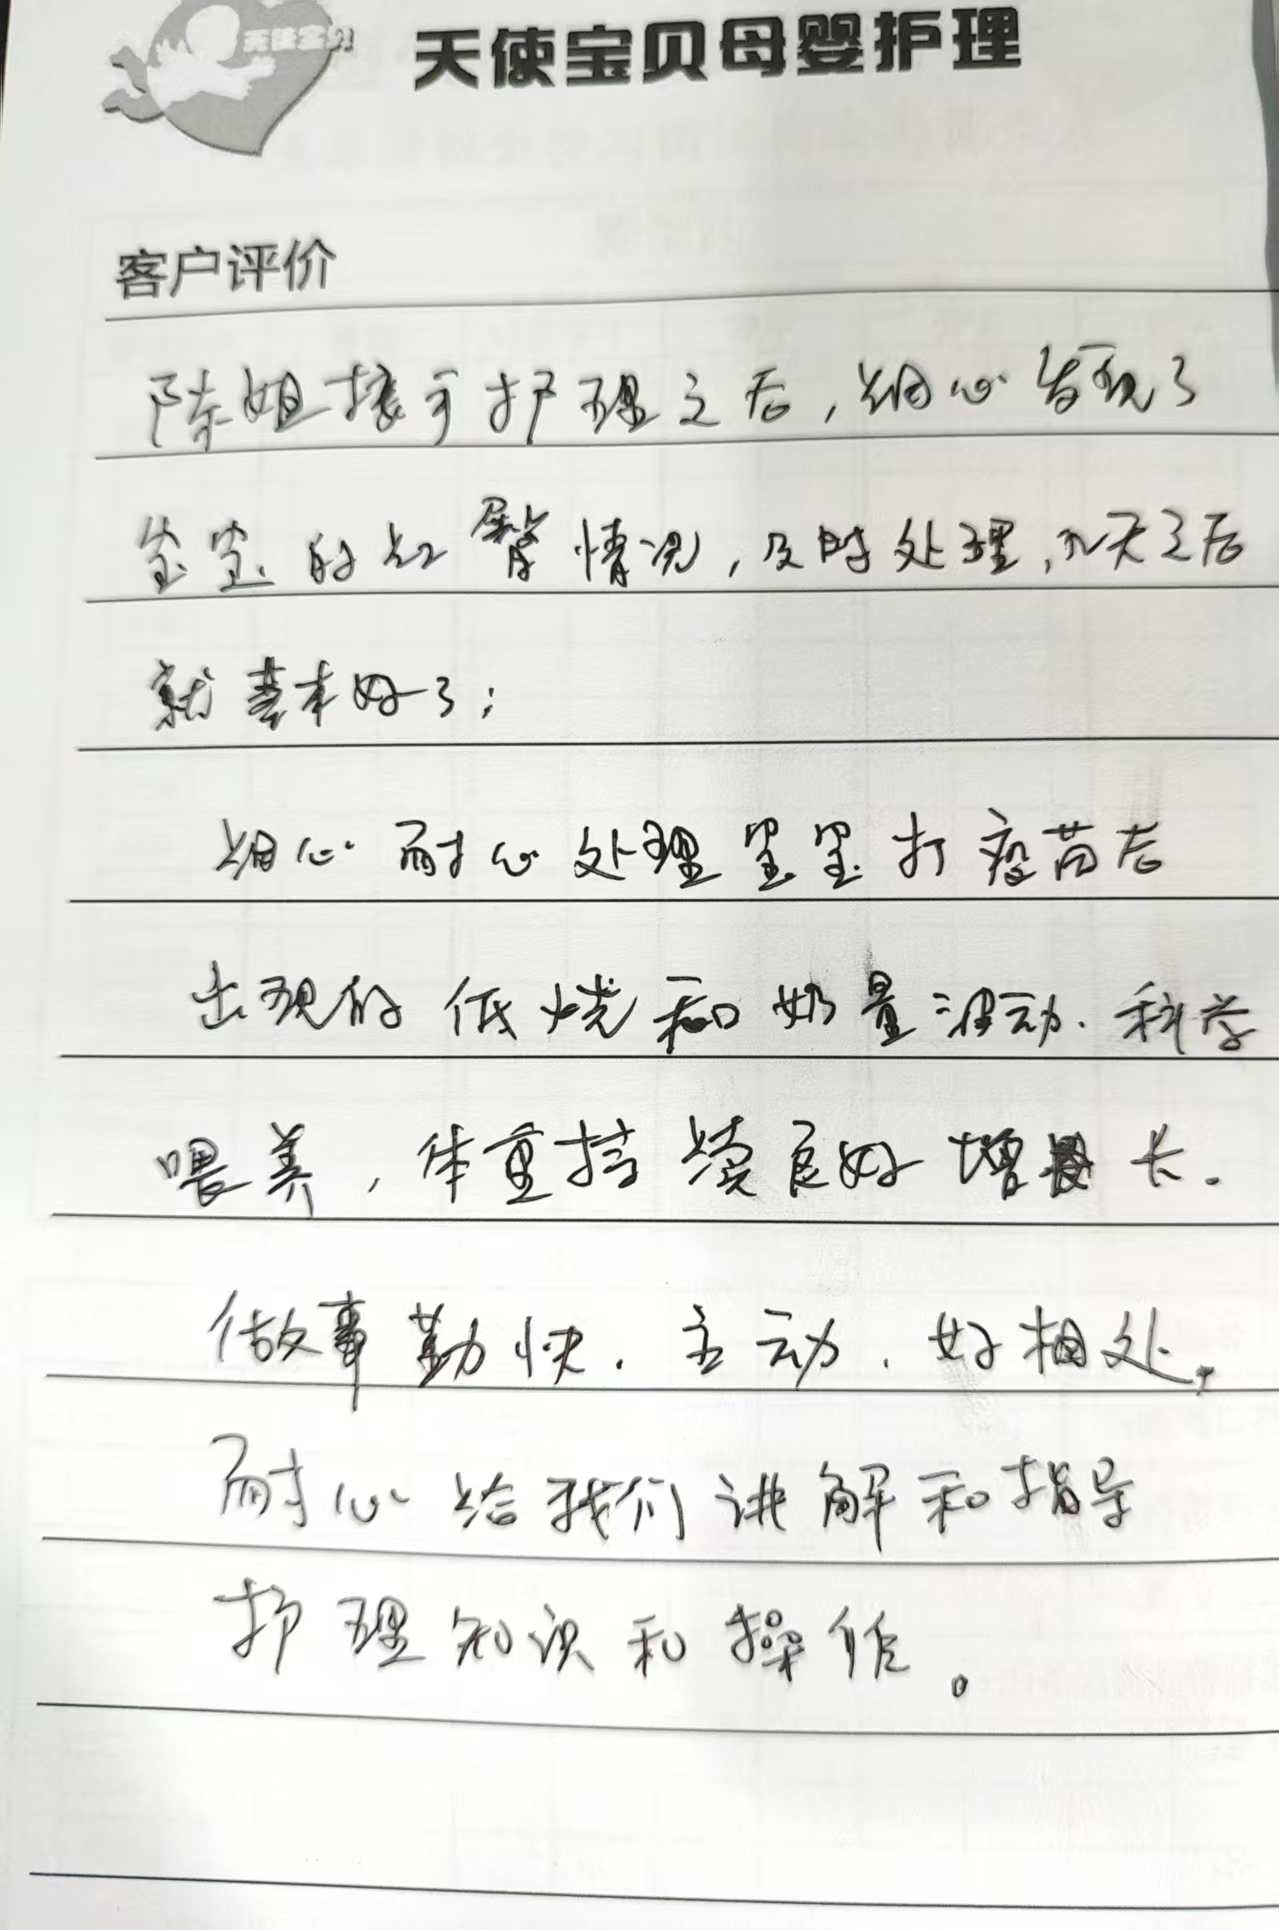 天使宝贝
天使宝贝母婴护理
客户评价
陈姐接手护理之后,细心发现了
宝宝的红臀情况,及时处理,几天之后
就基本好了;
细心耐心处理宝宝打疫苗后
出现的低烧和奶量波动、科学
喂养,体重持续良好增长.
做事勤快、主动、好相处,
耐心给我们讲解和指导
护理知识和操作。